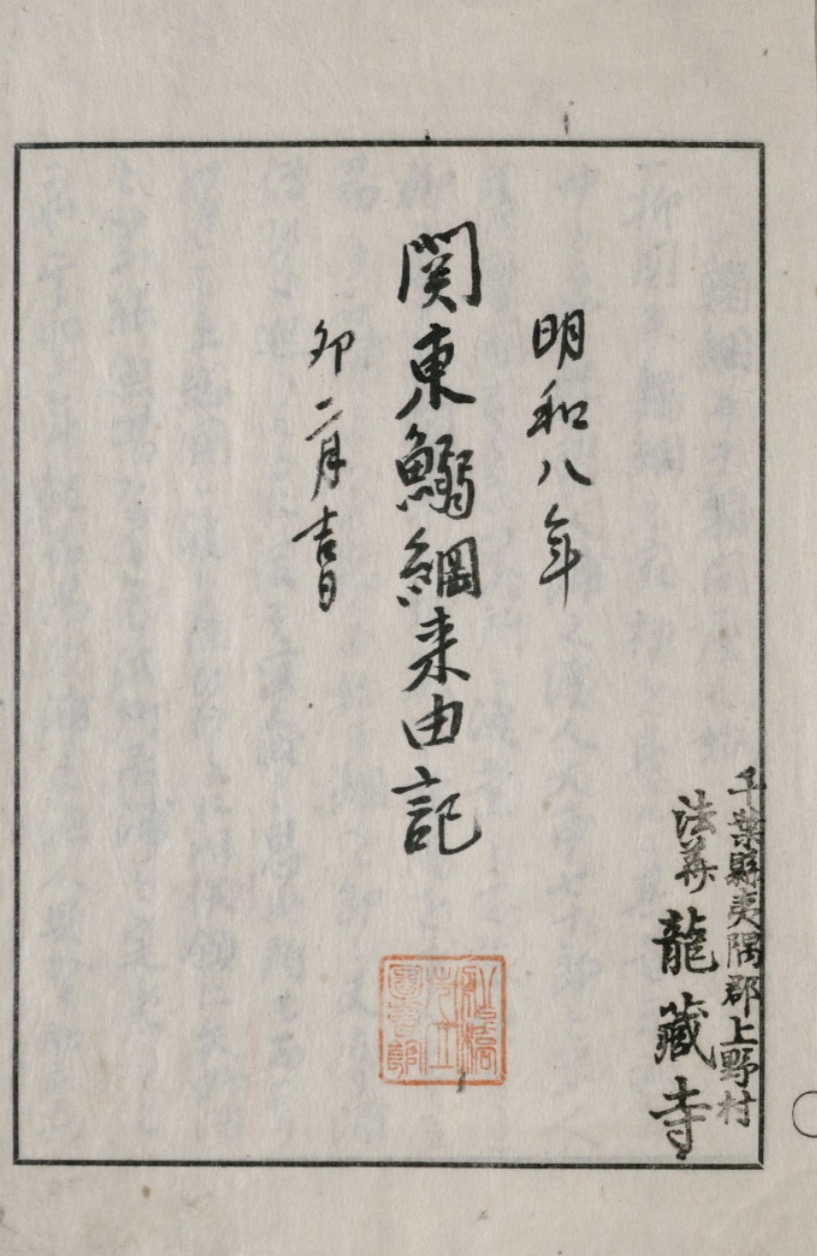 千葉縣夷隅郡上野村
法華 龍藏寺
明和八年
関東鰯網来由記
卯二月吉日